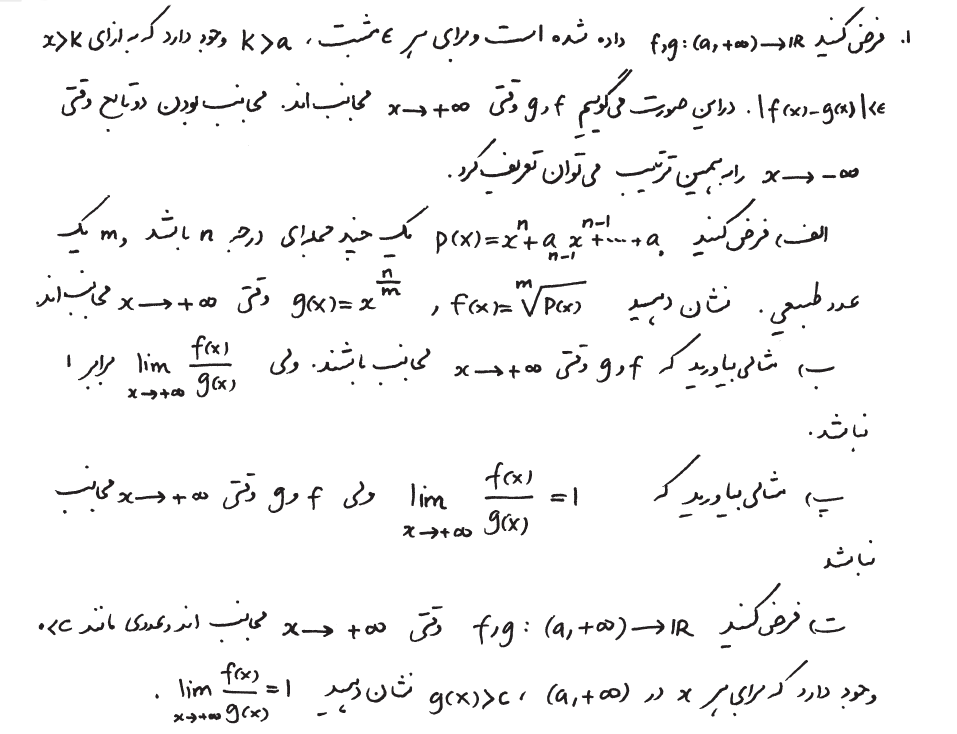 ۱. فرض کنید f,g : (a,+∞) → ℝ داده شده است و برای هر ϵ مثبت، k>a وجود دارد که به ازای x>k
|f(x)-g(x)|<ϵ. در این صورت می‌گوییم f و g وقتی x → +∞ مجانب‌اند. مجانب بودن دو تابع وقتی
x → -∞ را به همین ترتیب می‌توان تعریف کرد.
الف) فرض کنید p(x)=xⁿ+aₙ₋₁xⁿ⁻¹+⋯+a₀ یک چند جمله‌ای درجه n باشد و m یک
عدد طبیعی. نشان دهید f(x)=ᵐ√P(x) , g(x)=x^{n/m} وقتی x → +∞ مجانب‌اند.
ب) مثالی بیاورید که f و g وقتی x → +∞ مجانب باشند. ولی lim_{x→+∞} f(x)/g(x) برابر ۱
نباشد.
پ) مثالی بیاورید که lim_{x→+∞} f(x)/g(x) =1 ولی f و g وقتی x → +∞ مجانب
نباشد
ت) فرض کنید f,g : (a,+∞) → ℝ وقتی x → +∞ مجانب اند و عددی مانند ۰<c
وجود دارد که برای هر x در (a,+∞)، g(x)>c نشان دهید lim_{x→+∞} f(x)/g(x) =1.